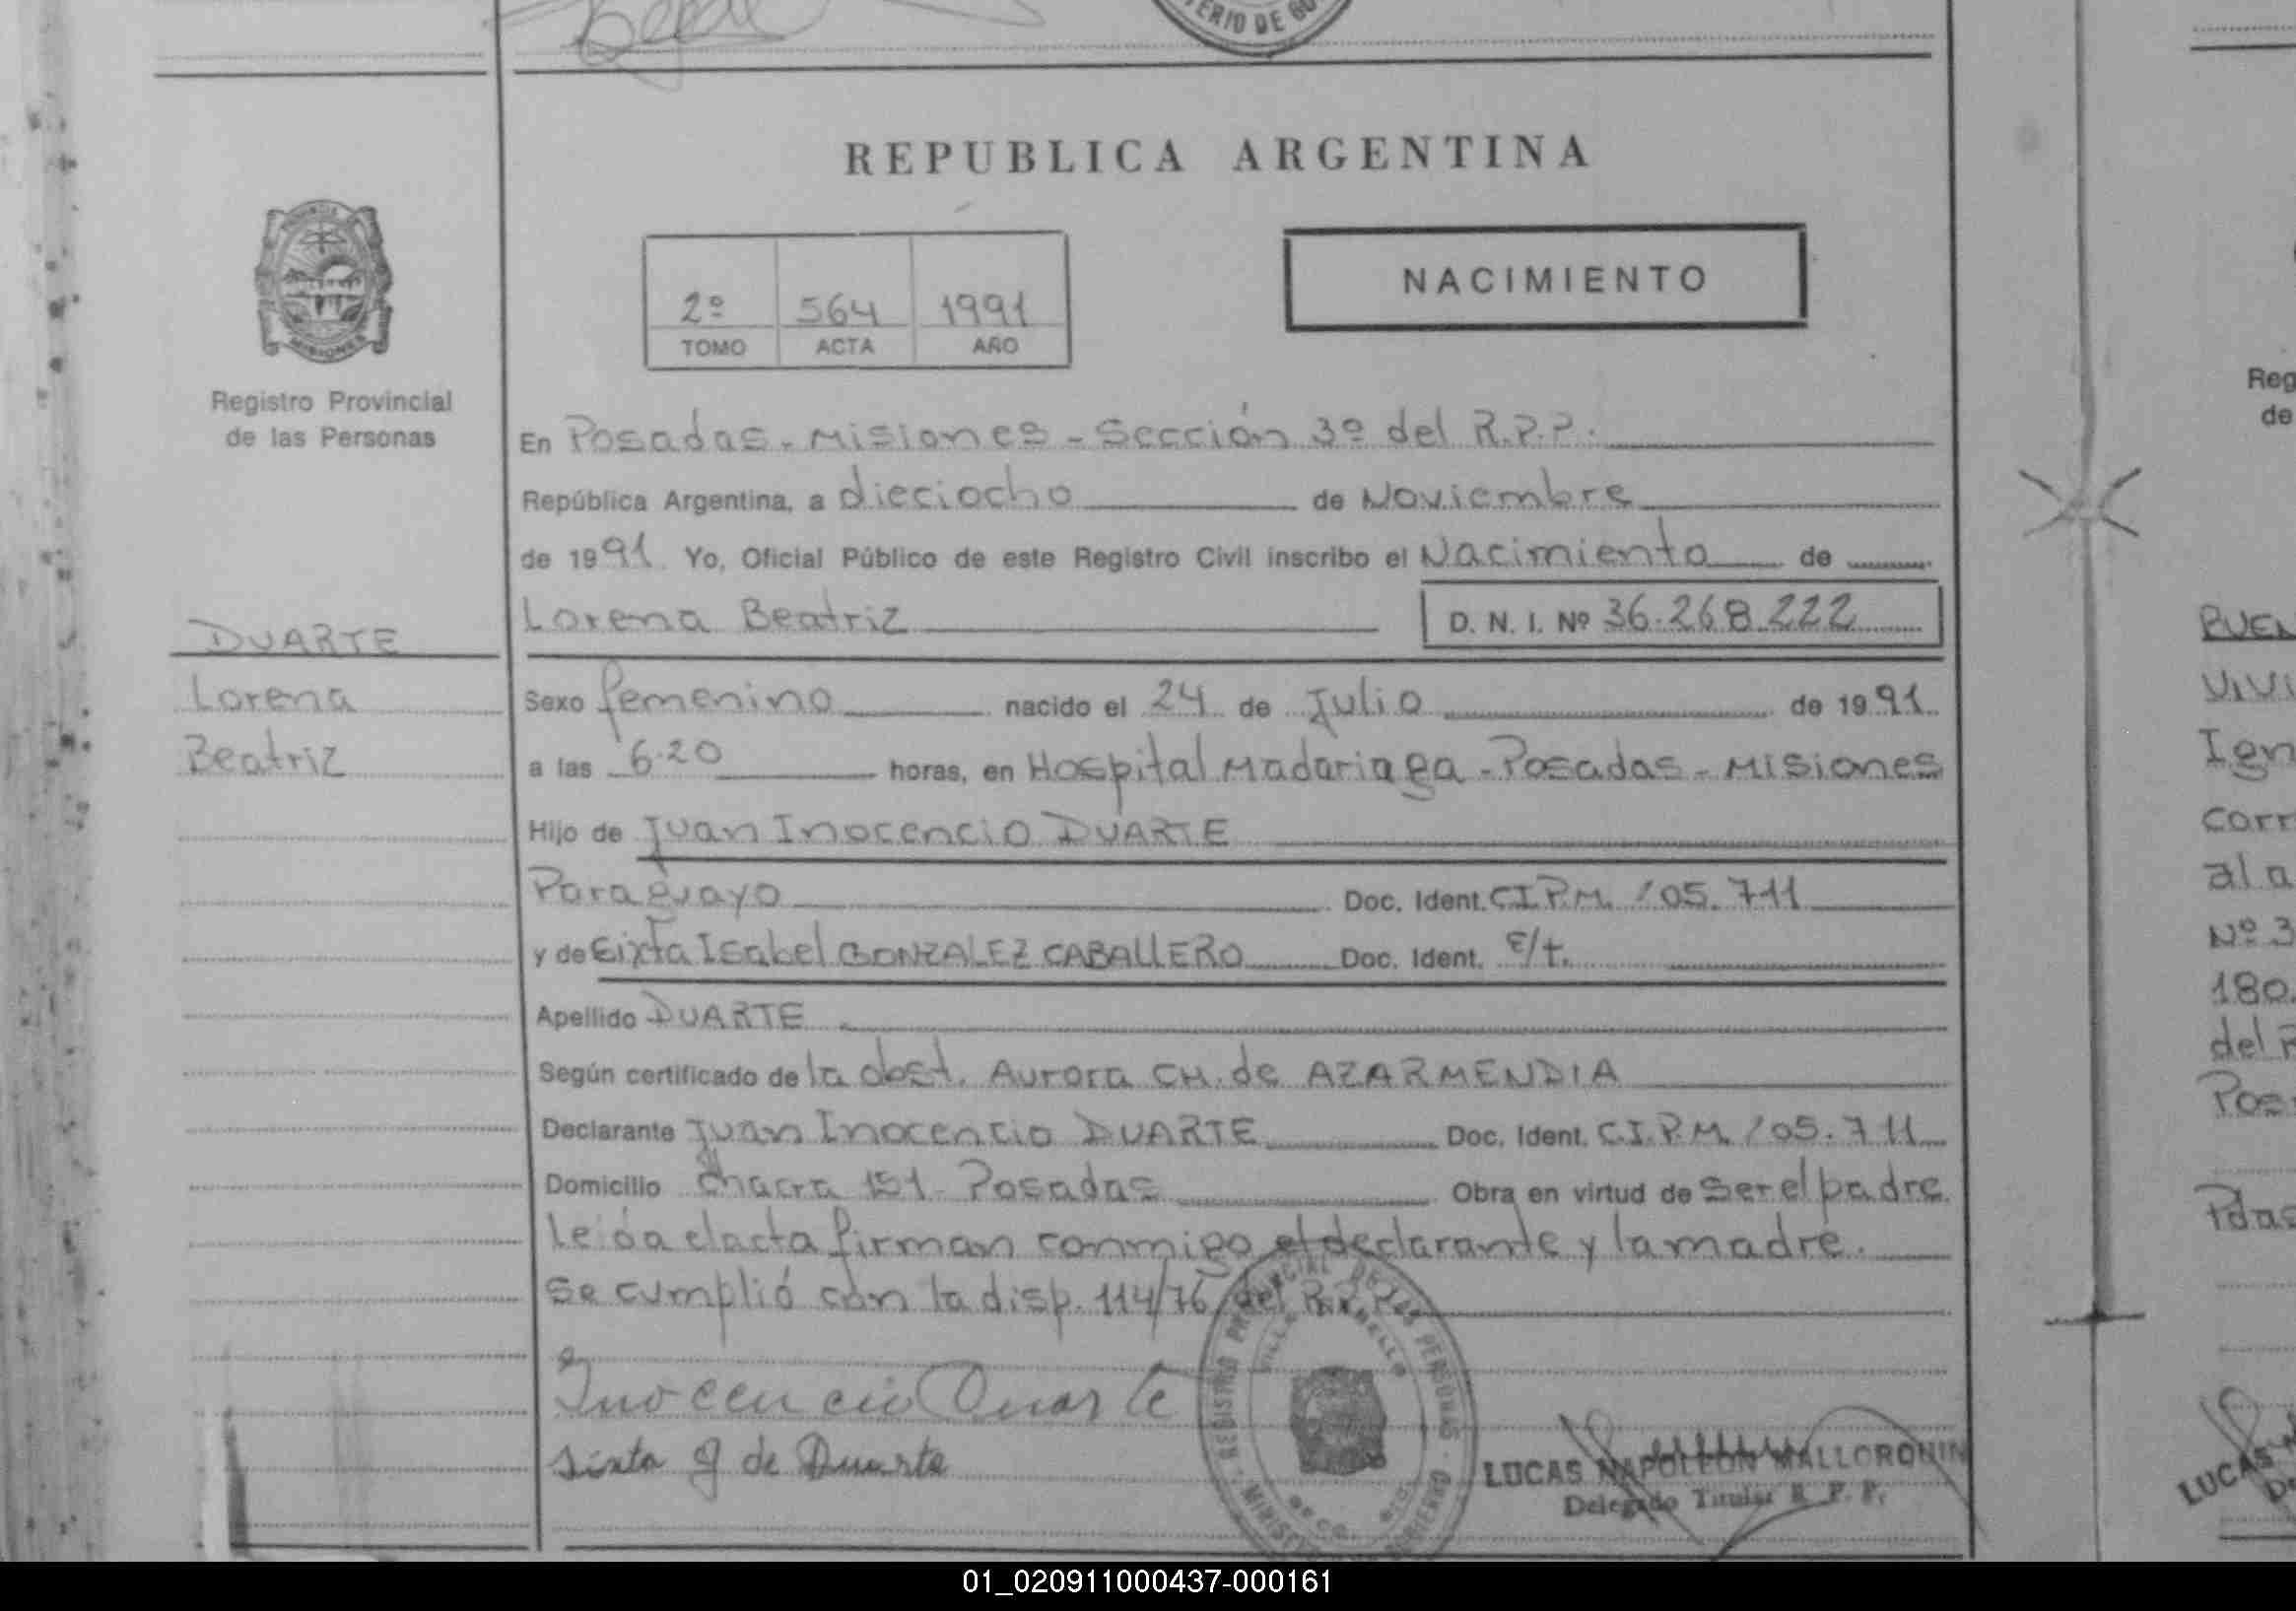 TERIO DE GO
REPUBLICA ARGENTINA
NACIMIENTO
2º 564 1991
TOMO ACTA AÑO
MISIONES
Registro Provincial
de las Personas
En Posadas - Misiones - Sección 3º del R.P.P.
República Argentina, a dieciocho de Noviembre
de 1991 Yo, Oficial Público de este Registro Civil inscribo el Nacimiento de
Lorena Beatriz D. N. I. Nº 36.268.222
DUARTE
Lorena
Beatriz
Sexo femenino nacido el 24 de Julio de 1991
a las 6.20 horas, en Hospital Madariaga - Posadas - Misiones
Hijo de Juan Inocencio DUARTE
Paraguayo Doc. Ident. C.I.P.M. 105.711
y de Sixta Isabel GONZALEZ CABALLERO Doc. Ident. E/t.
Apellido DUARTE
Según certificado de la obst. Aurora CH. de AZARMENDIA
Declarante Juan Inocencio DUARTE Doc. Ident. C.I.P.M. 105.711
Domicilio Chacra 151 - Posadas Obra en virtud de ser el padre.
Leída el acta firman conmigo el declarante y la madre.
Se cumplió con la disp. 114/76 del R.P.P.
Inocencio Duarte
Sixta G de Duarte
REGISTRO PROVINCIAL DE LAS PERSONAS
LUCAS NAPOLEON MALLORQUIN
Delegado Titular R. P. P.
Reg
de
BUEN
VIVI
Ign
corr
al a
Nº 3
180.
del R
Pos
Pdas
LUCAS
01_020911000437-000161